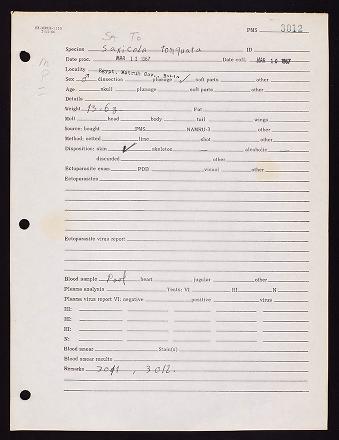 PMS 3012
SA TO
Species Saxicola torquata ID
Date proc. MAR 11 1967 Date coll. MAR 10 1967
Locality Egypt, Matruh Gov.,
Sex ♂ dissection plumage ✓ soft parts other
Age skull plumage soft parts other
Details
Weight 13.6g Fat
Molt head body tail wings
Source: bought PMS NAMRU-3 other
Method: netted lime shot other
Disposition: skin ✓ skeleton alcoholic
discarded other
Ectoparasite exam PDD visual other
Ectoparasites
Ectoparasite virus report
Blood sample Pool heart jugular other
Plasma analysis Tests: VI HI N
Plasma virus report VI: negative positive virus
HI:
HI:
HI:
N:
Blood smear Stain(s)
Blood smear results
Remarks 3011, 3012.